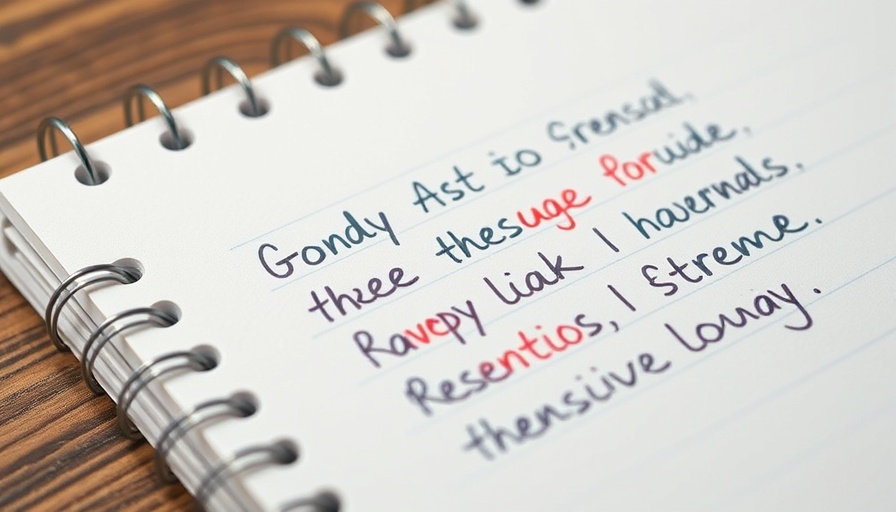 Gondy Ast io Srensad,
thkee thesuge Poruide,
Ravcpy liak I havernals.
Resentios, I Streme.
thensiive lounay.